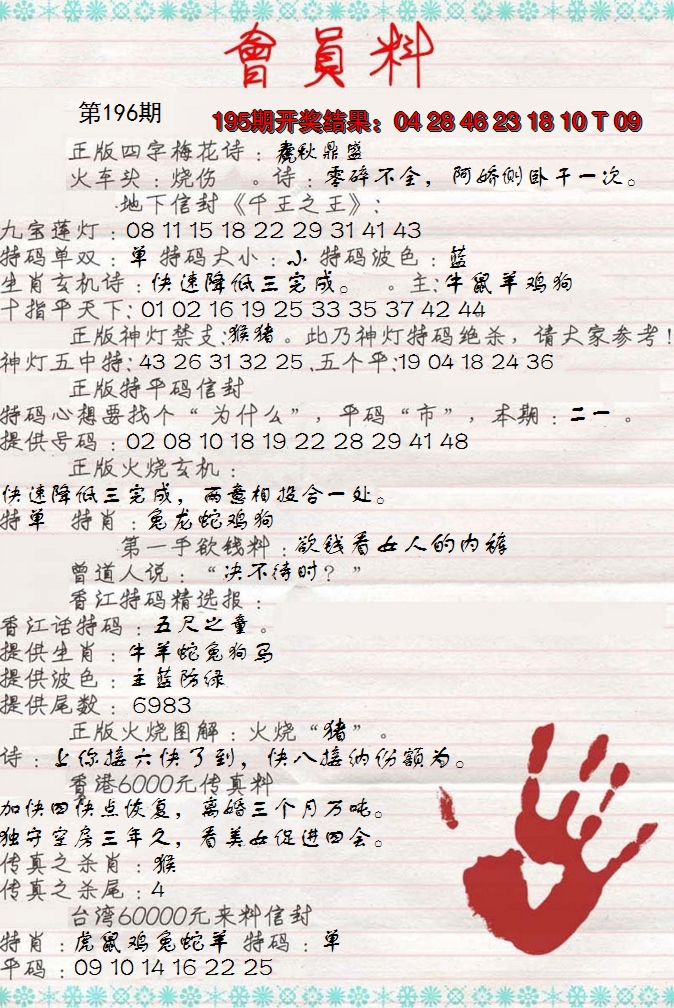 會員料
第196期
195期开奖结果：04 28 46 23 18 10 T 09
正版四字梅花诗：春秋鼎盛
火车头：烧伤 。诗：零碎不全，阿娇侧卧干一次。
地下信封《千王之王》：
九宝莲灯：08 11 15 18 22 29 31 41 43
特码单双：单 特码大小：小 特码波色：蓝
生肖玄机诗：快速降低三完成。 。主:牛鼠羊鸡狗
十指平天下: 01 02 16 19 25 33 35 37 42 44
正版神灯禁支:猴猪。此乃神灯特码绝杀，请大家参考!
神灯五中特: 43 26 31 32 25 .五个平:19 04 18 24 36
正版特平码信封
特码心想要找个“为什么”，平码“市”，本期：二一 。
提供号码：02 08 10 18 19 22 28 29 41 48
正版火烧玄机：
快速降低三完成，两意相投合一处。
特单 特肖：兔龙蛇鸡狗
第一手欲钱料：欲钱看女人的内裤
曾道人说：“决不待时？”
香江特码精选报：
香江话特码：五尺之童。
提供生肖：牛羊蛇兔狗马
提供波色：主蓝防绿
提供尾数：6983
正版火烧图解：火烧“猪”。
诗：上你接六快了到，快八接纳份额为。
香港6000元传真料
加快四快点恢复，离婚三个月万吨。
独守空房三年久，看美女促进四会。
传真之杀肖：猴
传真之杀尾：4
台湾60000元来料信封
特肖：虎鼠鸡兔蛇羊 特码：单
平码：09 10 14 16 22 25